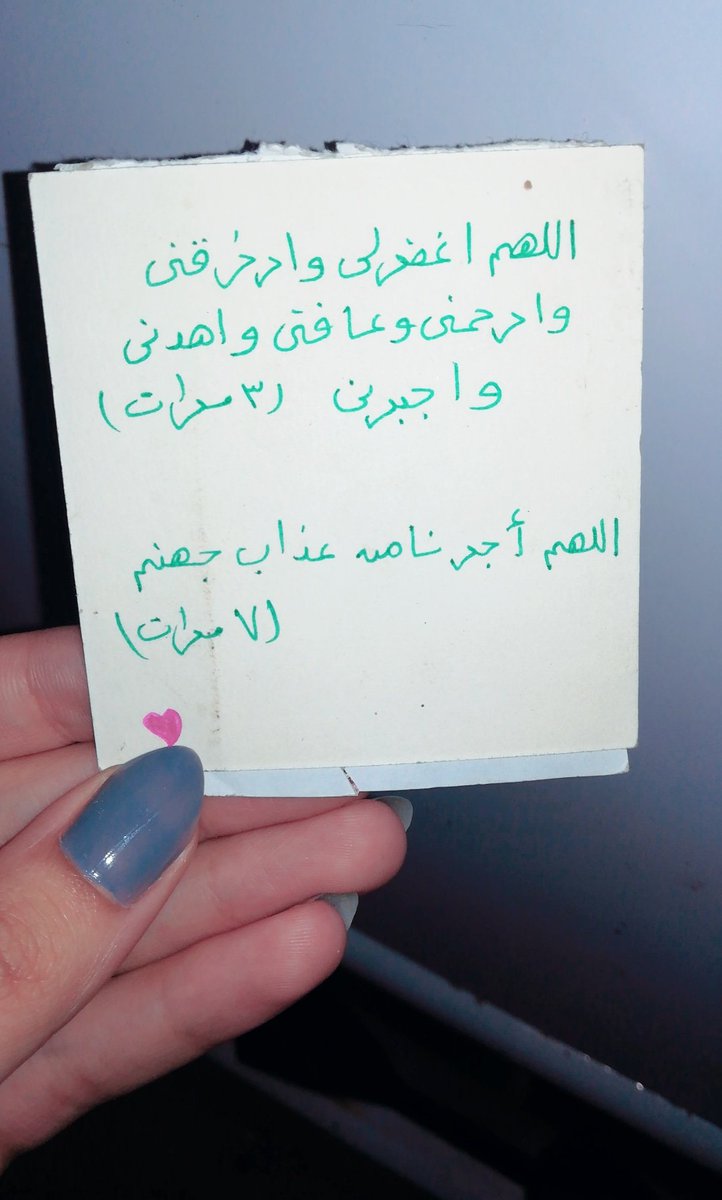 اللهم اغفرلى وارزقنى
وارحمنى وعافنى واهدنى
واجبرنى (٣ مرات)
اللهم أجرنا من عذاب جهنم
(٧ مرات)